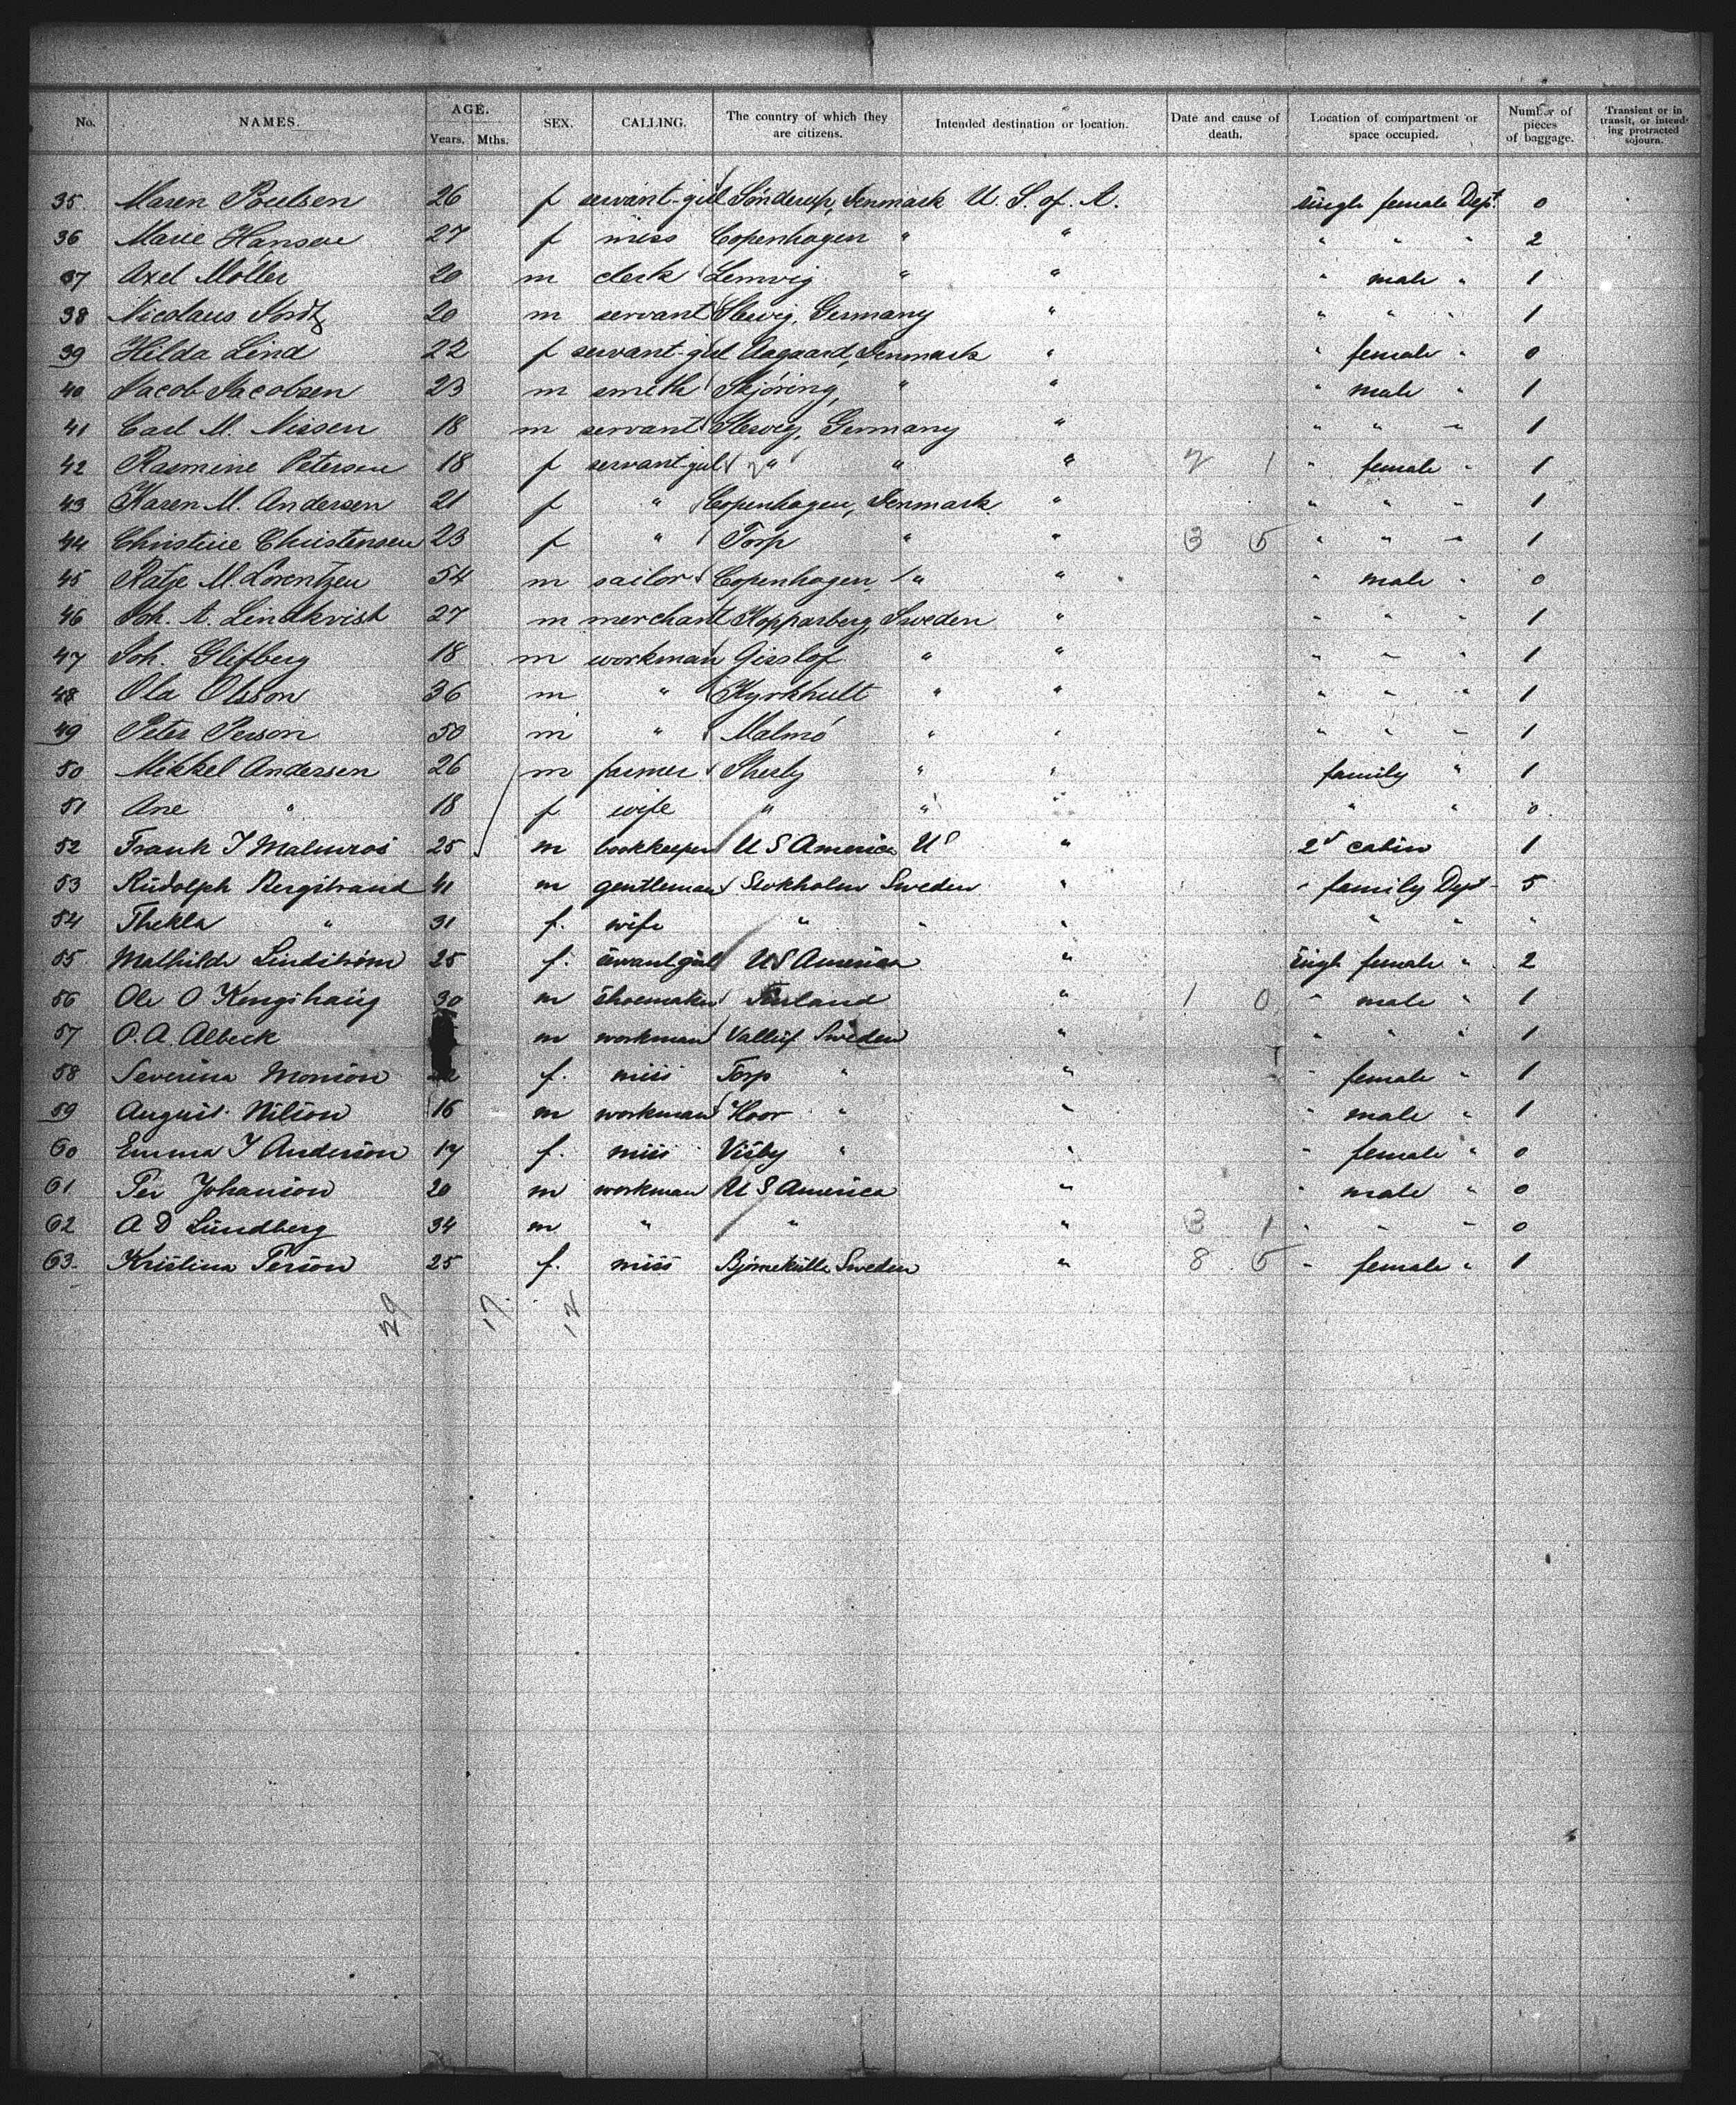 No. NAMES. AGE. Years. Mths. SEX. CALLING. The country of which they are citizens. Intended destination or location. Date and cause of death. Location of compartment or space occupied. Number of pieces of baggage. Transient or in transit, or intending protracted sojourn.
35 Maren Poulsen 26 f servant-girl Denmark U. S. of. A. single female Dept. 0
36 Marie Hansen 27 f miss Copenhagen " " " " " 2
37 Axel Möller 20 m clerk Lemvig " " " male " 1
38 Nicolaus 20 m servant Slesvig, Germany " " " " 1
39 Hilda Lind 22 f servant-girl Aagaard, Denmark " " female " 0
40 Jacob Jacobsen 23 m smith Skjöring, " " " male " 1
41 Carl M. Nissen 18 m servant Slesvig, Germany " " " " 1
42 Rasmine Petersen 18 f servant-girl " " " 2 1 " female " 1
43 Karen M. Andersen 21 f " Copenhagen, Denmark " " " " 1
44 Christine Christensen 23 f " Torp " " 3 5 " " " 1
45 M. Lorentzen 54 m sailor Copenhagen, " " " male " 0
46 Joh. A. Lindkvist 27 m merchant Kopparberg, Sweden " " " " 1
47 Joh. Glifberg 18 m workman Gisslof " " " " " 1
48 Ola Olsson 36 m " Kyrkhult " " " " " 1
49 Peter Person 50 m " Malmö " " " " " 1
50 Mikkel Andersen 26 m farmer " " family " 1
51 Ane " 18 f wife " " " " " 0
52 Frank J 25 m bookkeeper U S America U S " 2d cabin 1
53 Rudolph Bergstrand 41 m gentleman Stokholm Sweden " " family Dept 5
54 Thekla " 31 f. wife " " " " " "
55 Mathilde Lindström 25 f. servantgirl U S America " singl female " 2
56 Ole O 30 m shoemaker " 1 0 " male " 1
57 O. A. Albeck m workman Sweden " " " " 1
58 Severina Monson 22 f. miss Torp " " " female " 1
59 August Nilson 16 m workman Hoor " " " male " 1
60 Emma J Anderson 17 f. miss Visby " " " female " 0
61 Per Johanson 20 m workman U S America " " male " 0
62 A D Lundberg 34 m " " " 3 1 " " " 0
63. Kristina Person 25 f. miss Sweden " 8 5 " female " 1
29 17. 12